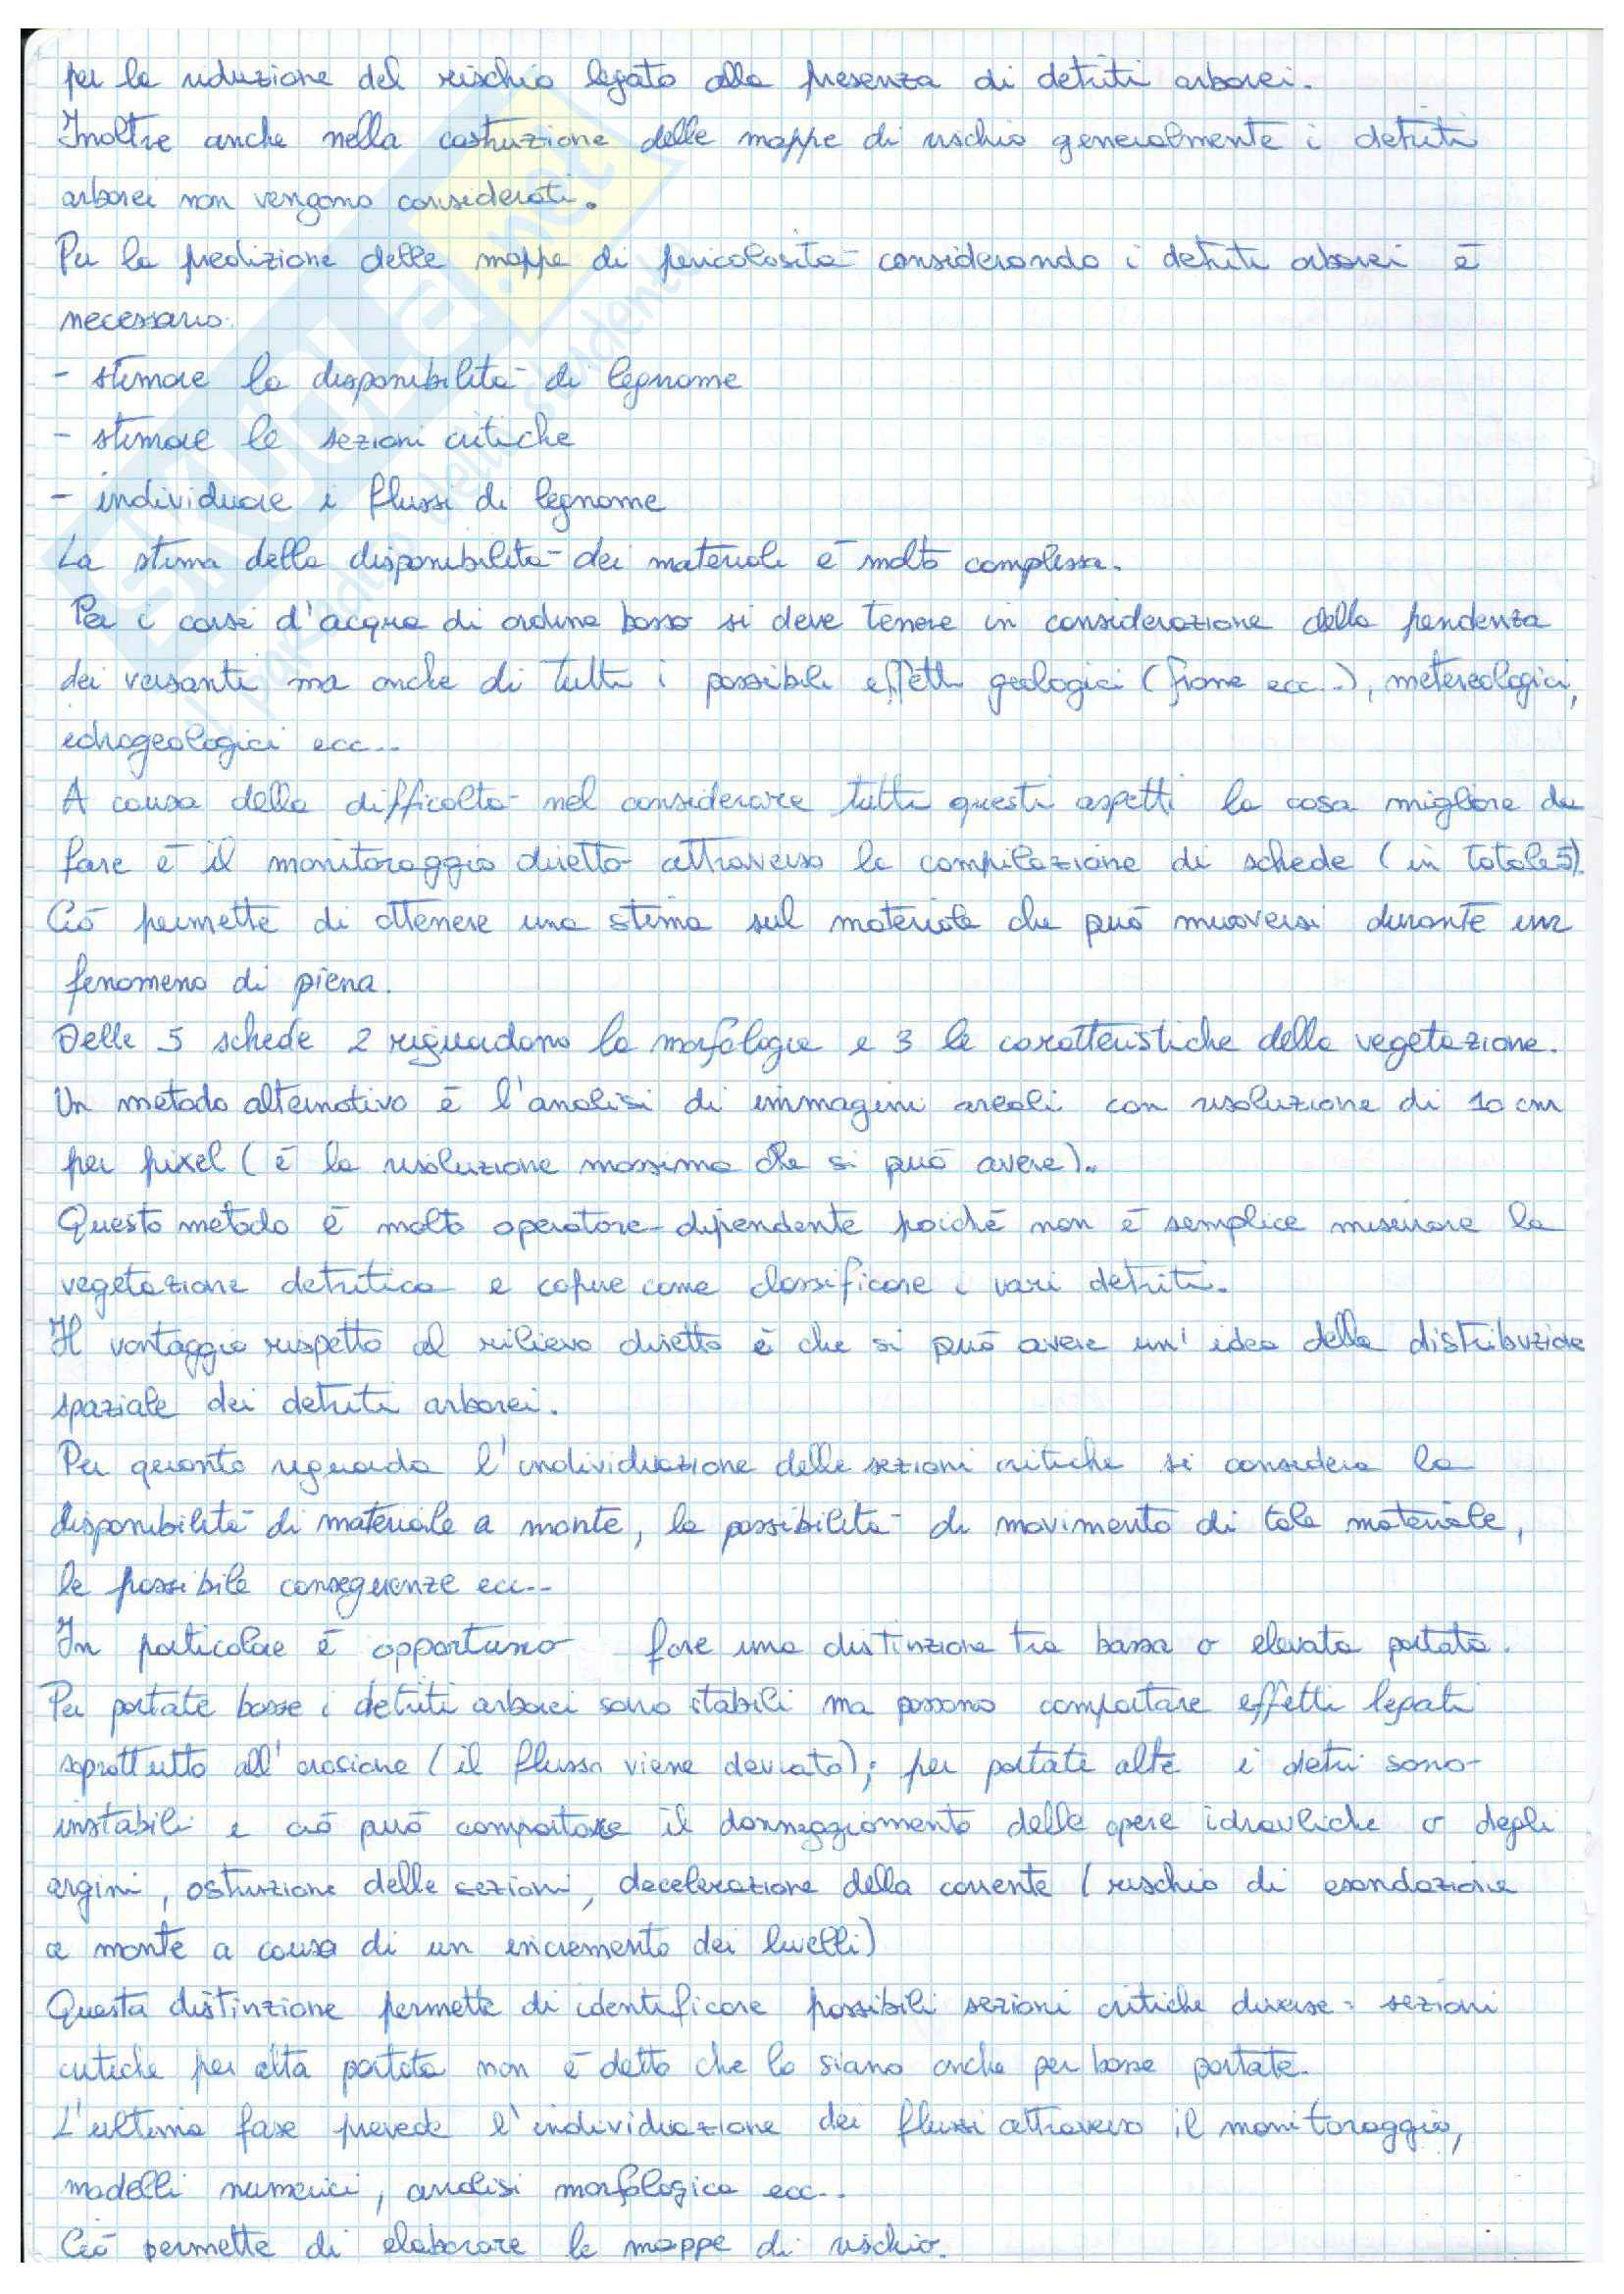 per la riduzione del rischio legato alla presenza di detriti arborei.
Inoltre anche nella costruzione delle mappe di rischio generalmente i detriti
arborei non vengono considerati.
Per la predizione delle mappe di pericolosità considerando i detriti arborei è
necessario:
- stimare la disponibilità di legname
- stimare le sezioni critiche
- individuare i flussi di legname
La stima della disponibilità dei materiali è molto complessa.
Per i corsi d'acqua di ordine basso si deve tenere in considerazione della pendenza
dei versanti ma anche di tutti i possibili effetti geologici (frane ecc...), metereologici,
idrogeologici ecc...
A causa della difficoltà nel considerare tutti questi aspetti la cosa migliore da
fare è il monitoraggio diretto attraverso la compilazione di schede (in totale 5).
Ciò permette di ottenere una stima sul materiale che può muoversi durante un
fenomeno di piena.
Delle 5 schede 2 riguardano la morfologia e 3 le caratteristiche della vegetazione.
Un metodo alternativo è l'analisi di immagini areali con risoluzione di 10 cm
per pixel (è la risoluzione massima che si può avere).
Questo metodo è molto operatore-dipendente poiché non è semplice misurare la
vegetazione detritica e capire come classificare i vari detriti.
Il vantaggio rispetto al rilievo diretto è che si può avere un'idea della distribuzione
spaziale dei detriti arborei.
Per quanto riguarda l'individuazione delle sezioni critiche si considera la
disponibilità di materiale a monte, la possibilità di movimento di tale materiale,
le possibili conseguenze ecc...
In particolare è opportuno fare una distinzione tra bassa o elevata portata.
Per portate basse i detriti arborei sono stabili ma possono comportare effetti legati
soprattutto all'erosione (il flusso viene deviato); per portate alte i detri sono
instabili e ciò può comportare il danneggiamento delle opere idrauliche o degli
argini, ostruzione delle sezioni, decelerazione della corrente (rischio di esondazione
a monte a causa di un incremento dei livelli)
Questa distinzione permette di identificare possibili sezioni critiche diverse: sezioni
critiche per alta portata non è detto che lo siano anche per basse portate.
L'ultima fase prevede l'individuazione dei flussi attraverso il monitoraggio,
modelli numerici, analisi morfologica ecc..
Ciò permette di elaborare le mappe di rischio.